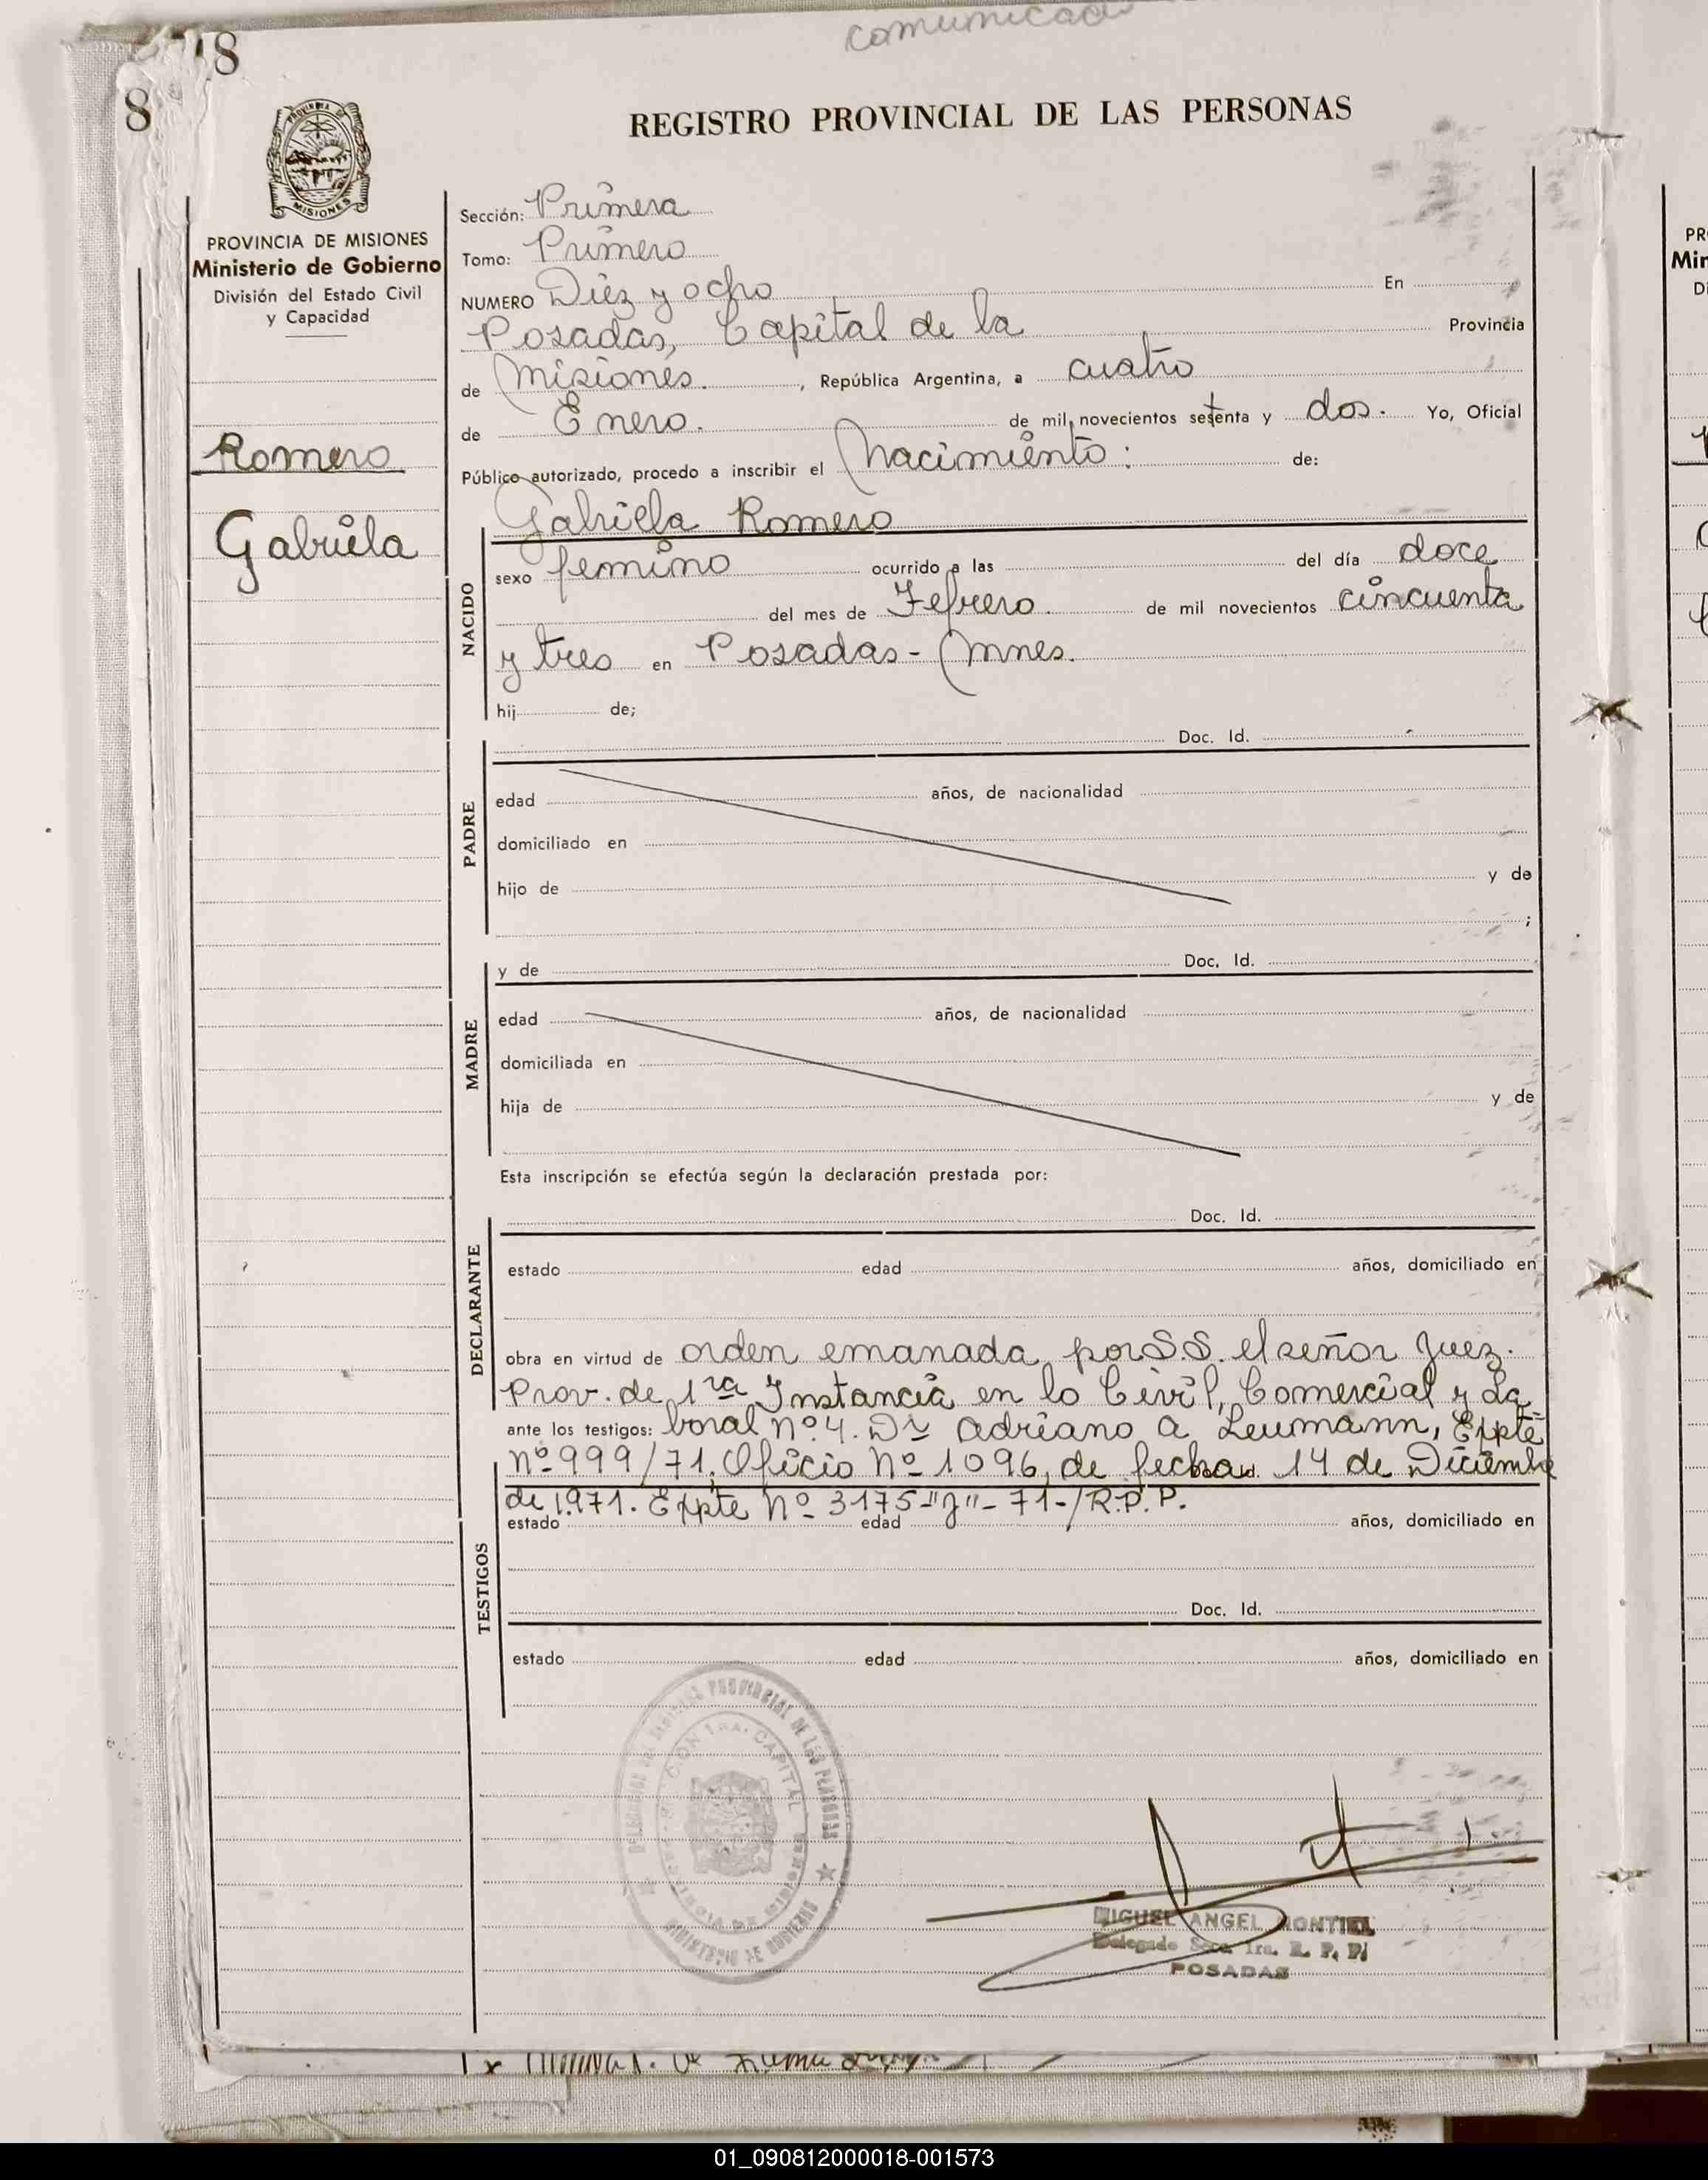 comunicado
18
8
REGISTRO PROVINCIAL DE LAS PERSONAS
MISIONES
PROVINCIA DE MISIONES
Ministerio de Gobierno
División del Estado Civil
y Capacidad
Romero
Gabriela
Sección: Primera
Tomo: Primero
NUMERO Diez y ocho En
Posadas, Capital de la Provincia
de Misiones. , República Argentina, a cuatro
de Enero. de mil novecientos setenta y dos. Yo, Oficial
Público autorizado, procedo a inscribir el Nacimiento: de:
Gabriela Romero
NACIDO
sexo femino ocurrido a las del día doce
del mes de Febrero. de mil novecientos cincuenta
y tres en Posadas - Mnes.
hij de;
Doc. Id.
PADRE
edad años, de nacionalidad
domiciliado en
hijo de y de
;
y de Doc. Id.
MADRE
edad años, de nacionalidad
domiciliada en
hija de y de
Esta inscripción se efectúa según la declaración prestada por:
Doc. Id.
DECLARANTE
estado edad años, domiciliado en
obra en virtud de orden emanada por S.S. el señor Juez.
Prov. de 1ra Instancia en lo Civil, Comercial y La
ante los testigos: boral nº 4. Dr Adriano A Leumann, Expte
nº 999/71. Oficio Nº 1096, de fecha 14 de Diciembre
de 1971. Expte Nº 3175-"J"-71-/R.P.P.
estado edad años, domiciliado en
TESTIGOS
Doc. Id.
estado edad años, domiciliado en
PROVINCIAL DE LAS PERSONAS
SECCION 1RA. CAPITAL
MINISTERIO DE GOBIERNO
MIGUEL ANGEL MONTIEL
Delegado Secc. 1ra. R. P. P.
POSADAS
PR
Min
Di
01_090812000018-001573